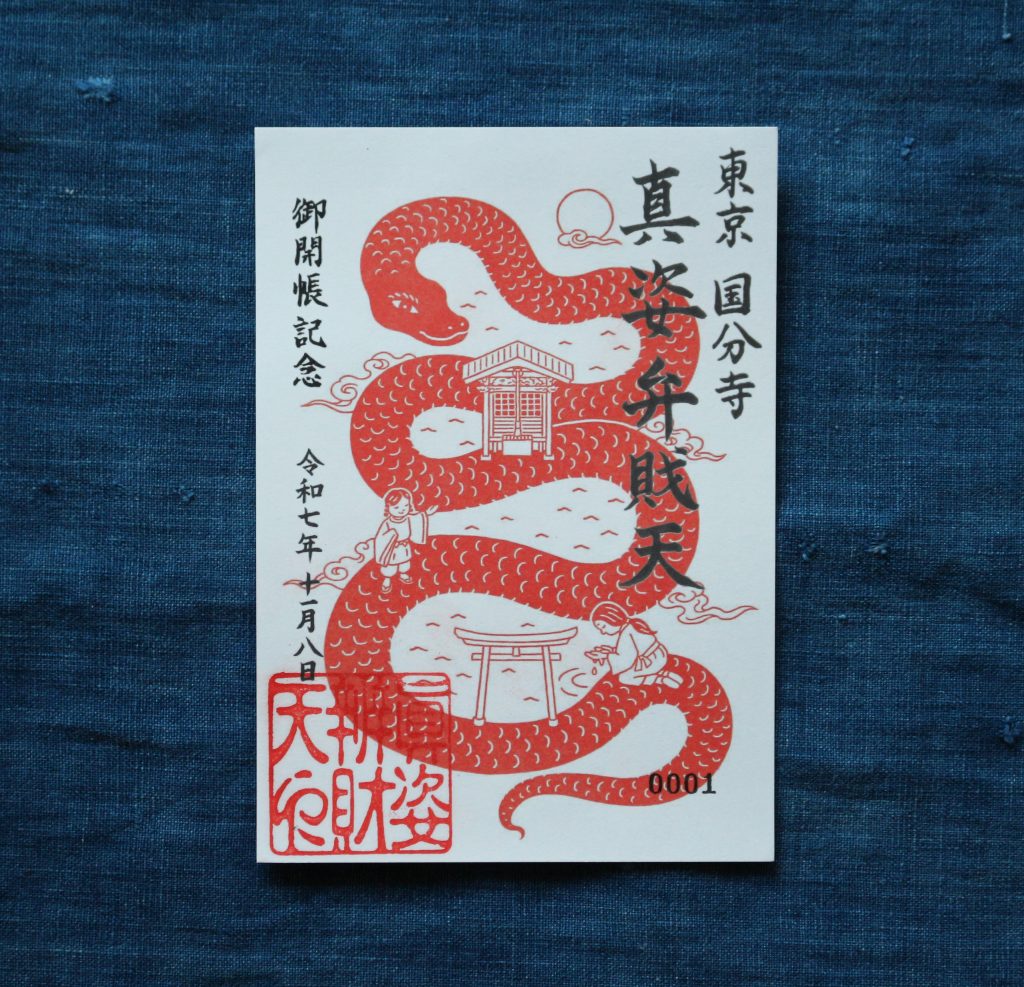 東京 国分寺
真姿弁戝天
御開帳記念
令和七年 十一月八日
眞姿
辨財
天印
0001